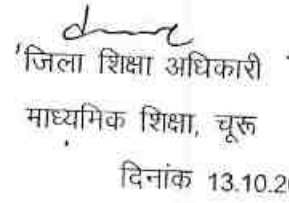 जिला शिक्षा अधिकारी
माध्यमिक शिक्षा, चूरू
दिनांक 13.10.2